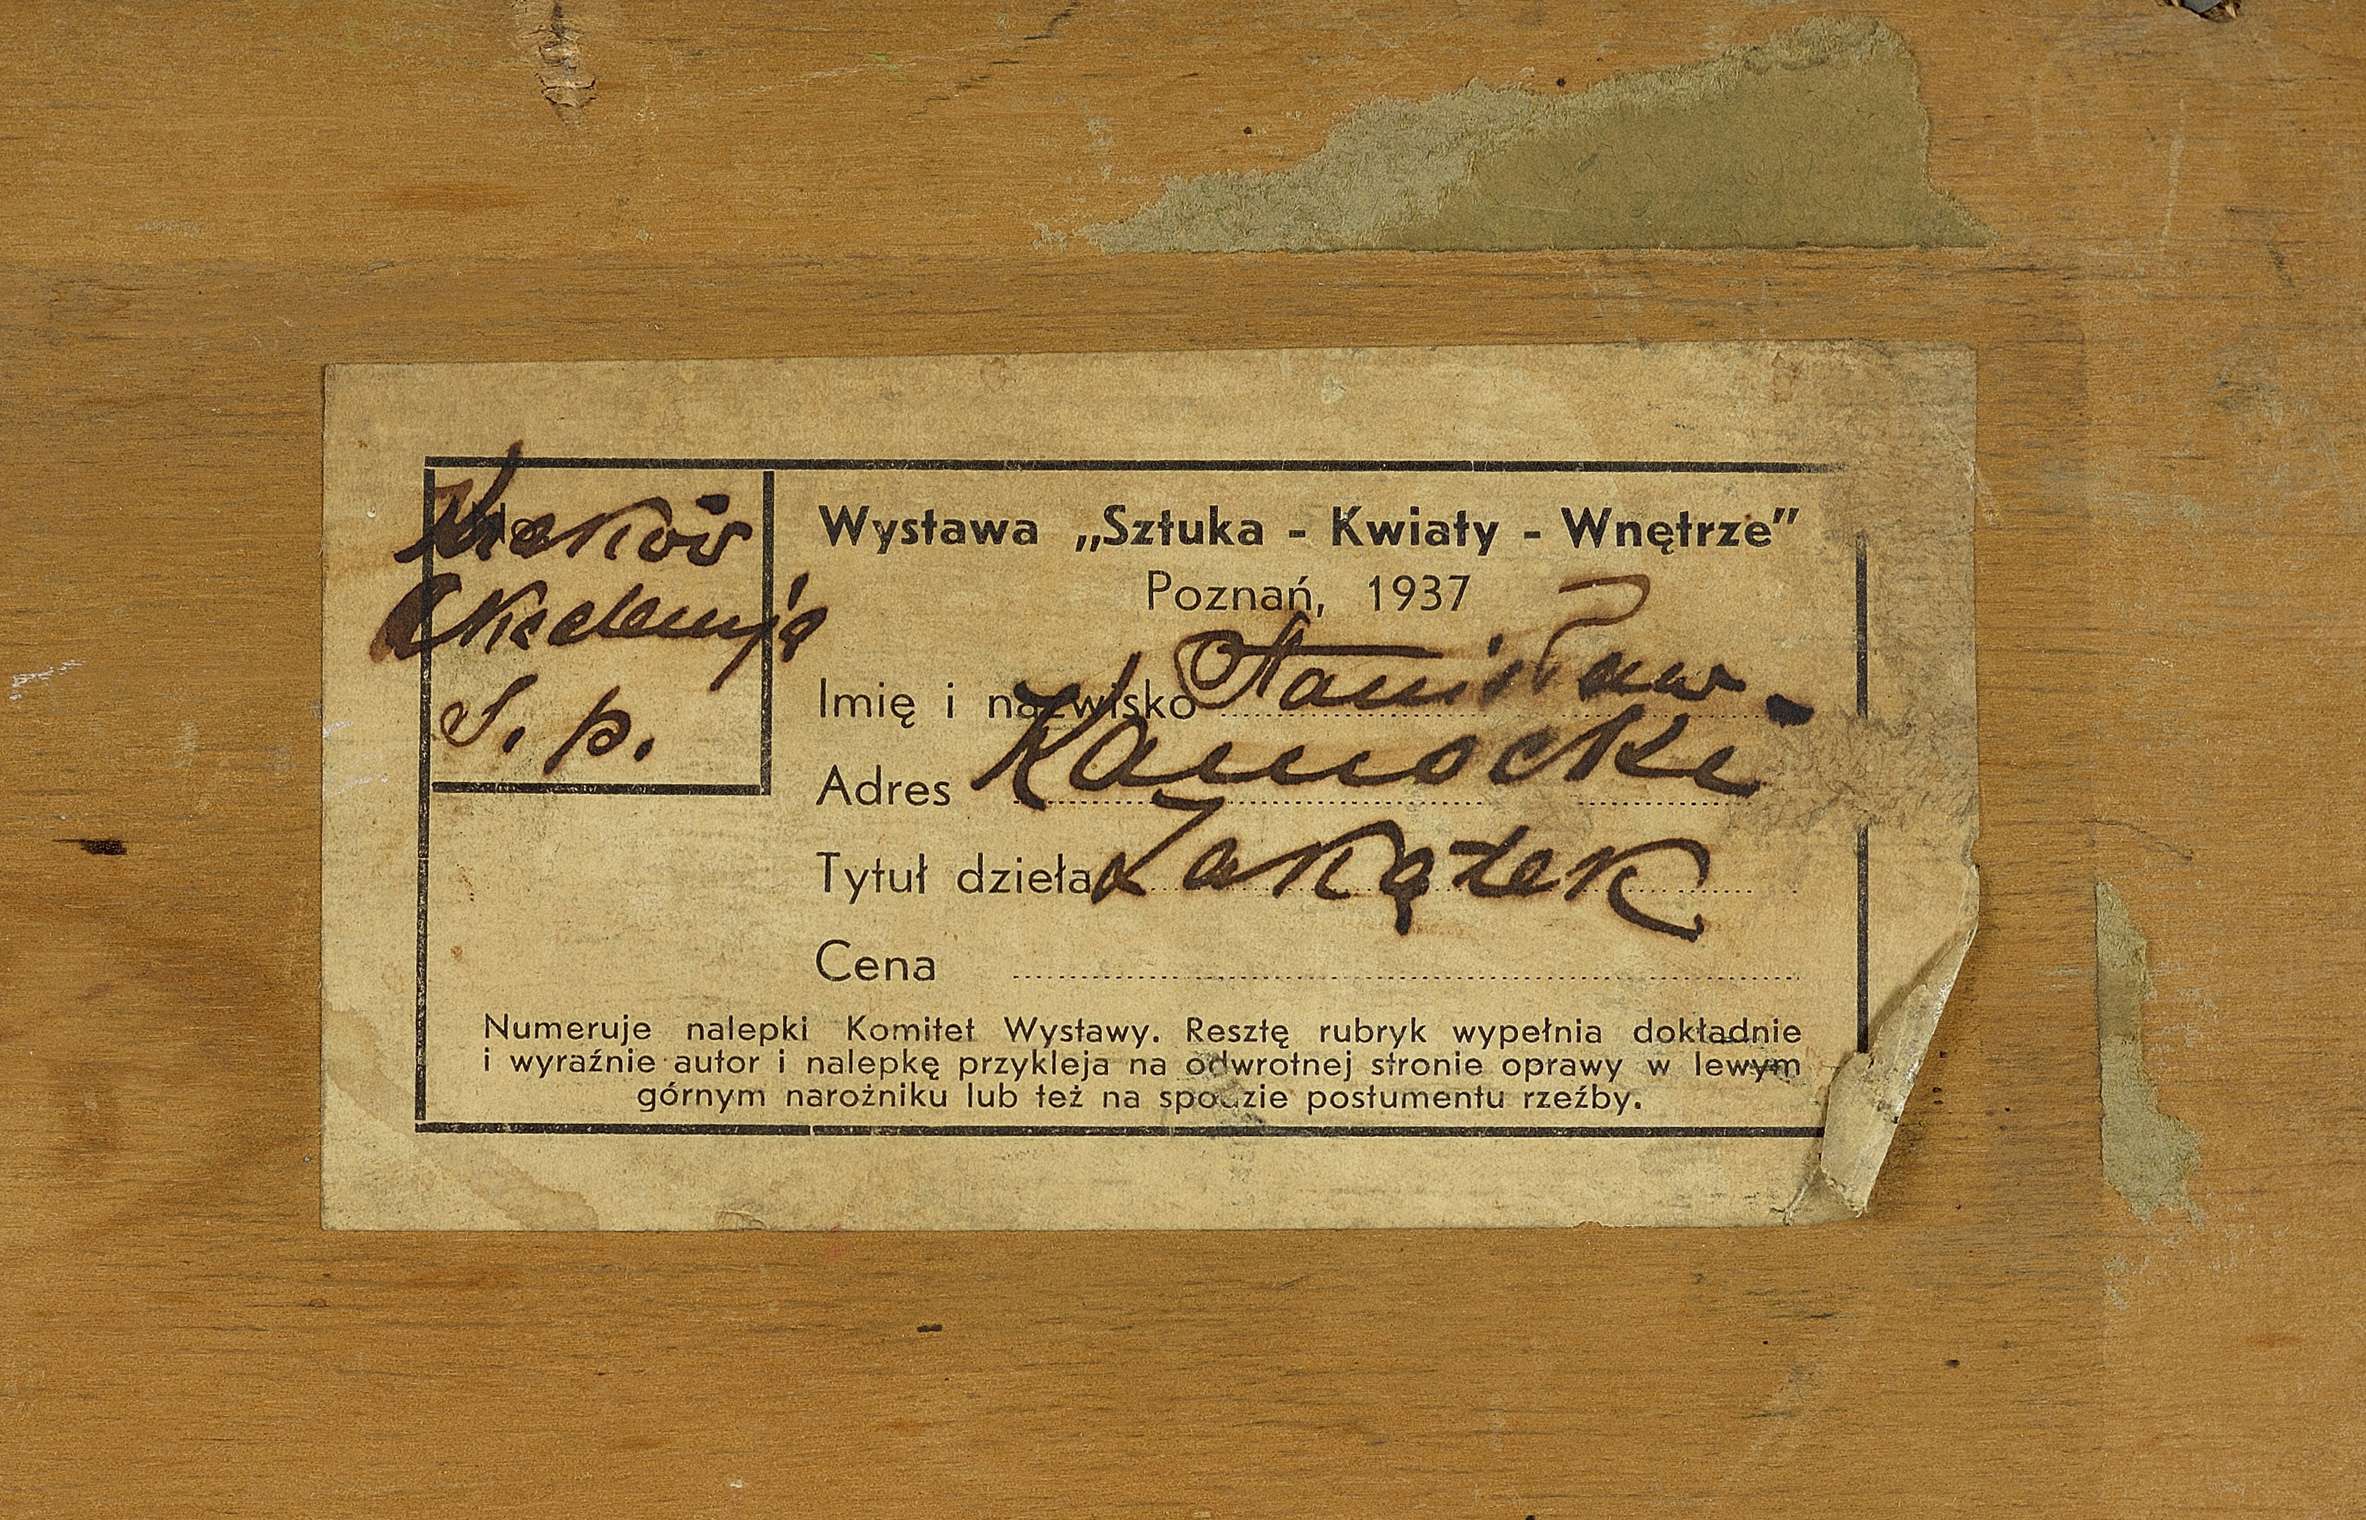 Kraków
Akademja
S. p.
Wystawa „Sztuka - Kwiaty - Wnętrze”
Poznań, 1937
Imię i nazwisko Stanisław
Kamocki
Adres
Tytuł dzieła Zakątek
Cena
Numeruje nalepki Komitet Wystawy. Resztę rubryk wypełnia dokładnie
i wyraźnie autor i nalepkę przykleja na odwrotnej stronie oprawy w lewym
górnym narożniku lub też na spodzie postumentu rzeźby.